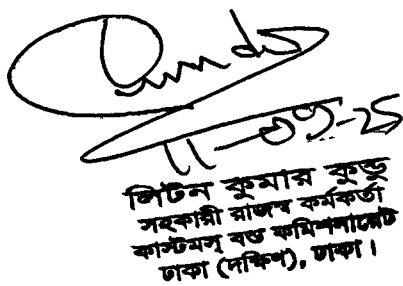 Kundu
11-09-25
লিটন কুমার কুন্ডু
সহকারী রাজস্ব কর্মকর্তা
কাস্টমস্ বন্ড কমিশনারেট
ঢাকা (দক্ষিণ), ঢাকা।